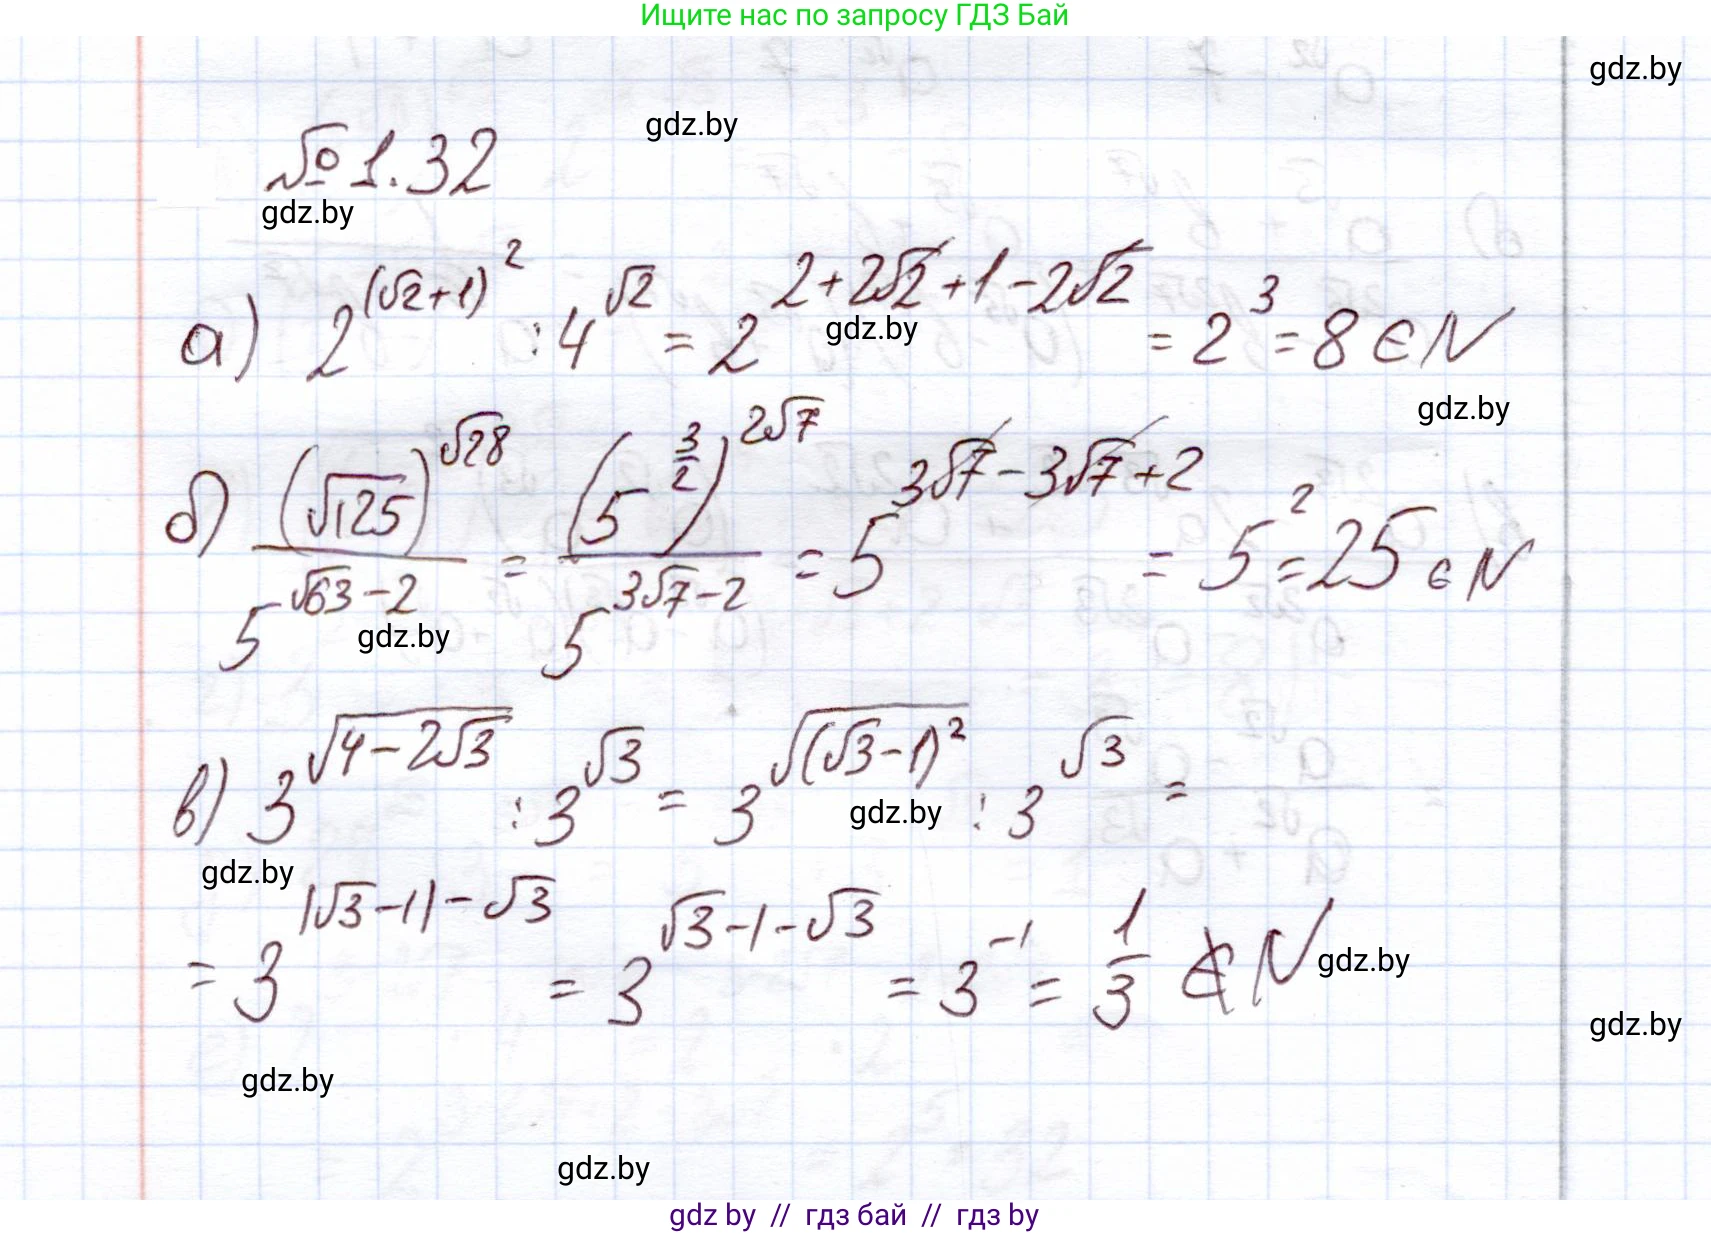 Ищите нас по запросу ГДЗ Бай
gdz.by
gdz.by
№ 1.32
gdz.by
а) 2^{(√2+1)^2} : 4^{√2} = 2^{2+2√2+1-2√2} = 2^3 = 8 ∈ N
gdz.by
gdz.by
б) (√125)^{√28} / 5^{√63-2} = (5^{3/2})^{2√7} / 5^{3√7-2} = 5^{3√7-3√7+2} = 5^2 = 25 ∈ N
gdz.by
в) 3^{√(4-2√3)} : 3^{√3} = 3^{√((√3-1)^2)} : 3^{√3} =
gdz.by
gdz.by
= 3^{|√3-1|-√3} = 3^{√3-1-√3} = 3^{-1} = 1/3 ∉ N
gdz.by
gdz.by
gdz.by
gdz.by
gdz by // гдз бай // гдз by